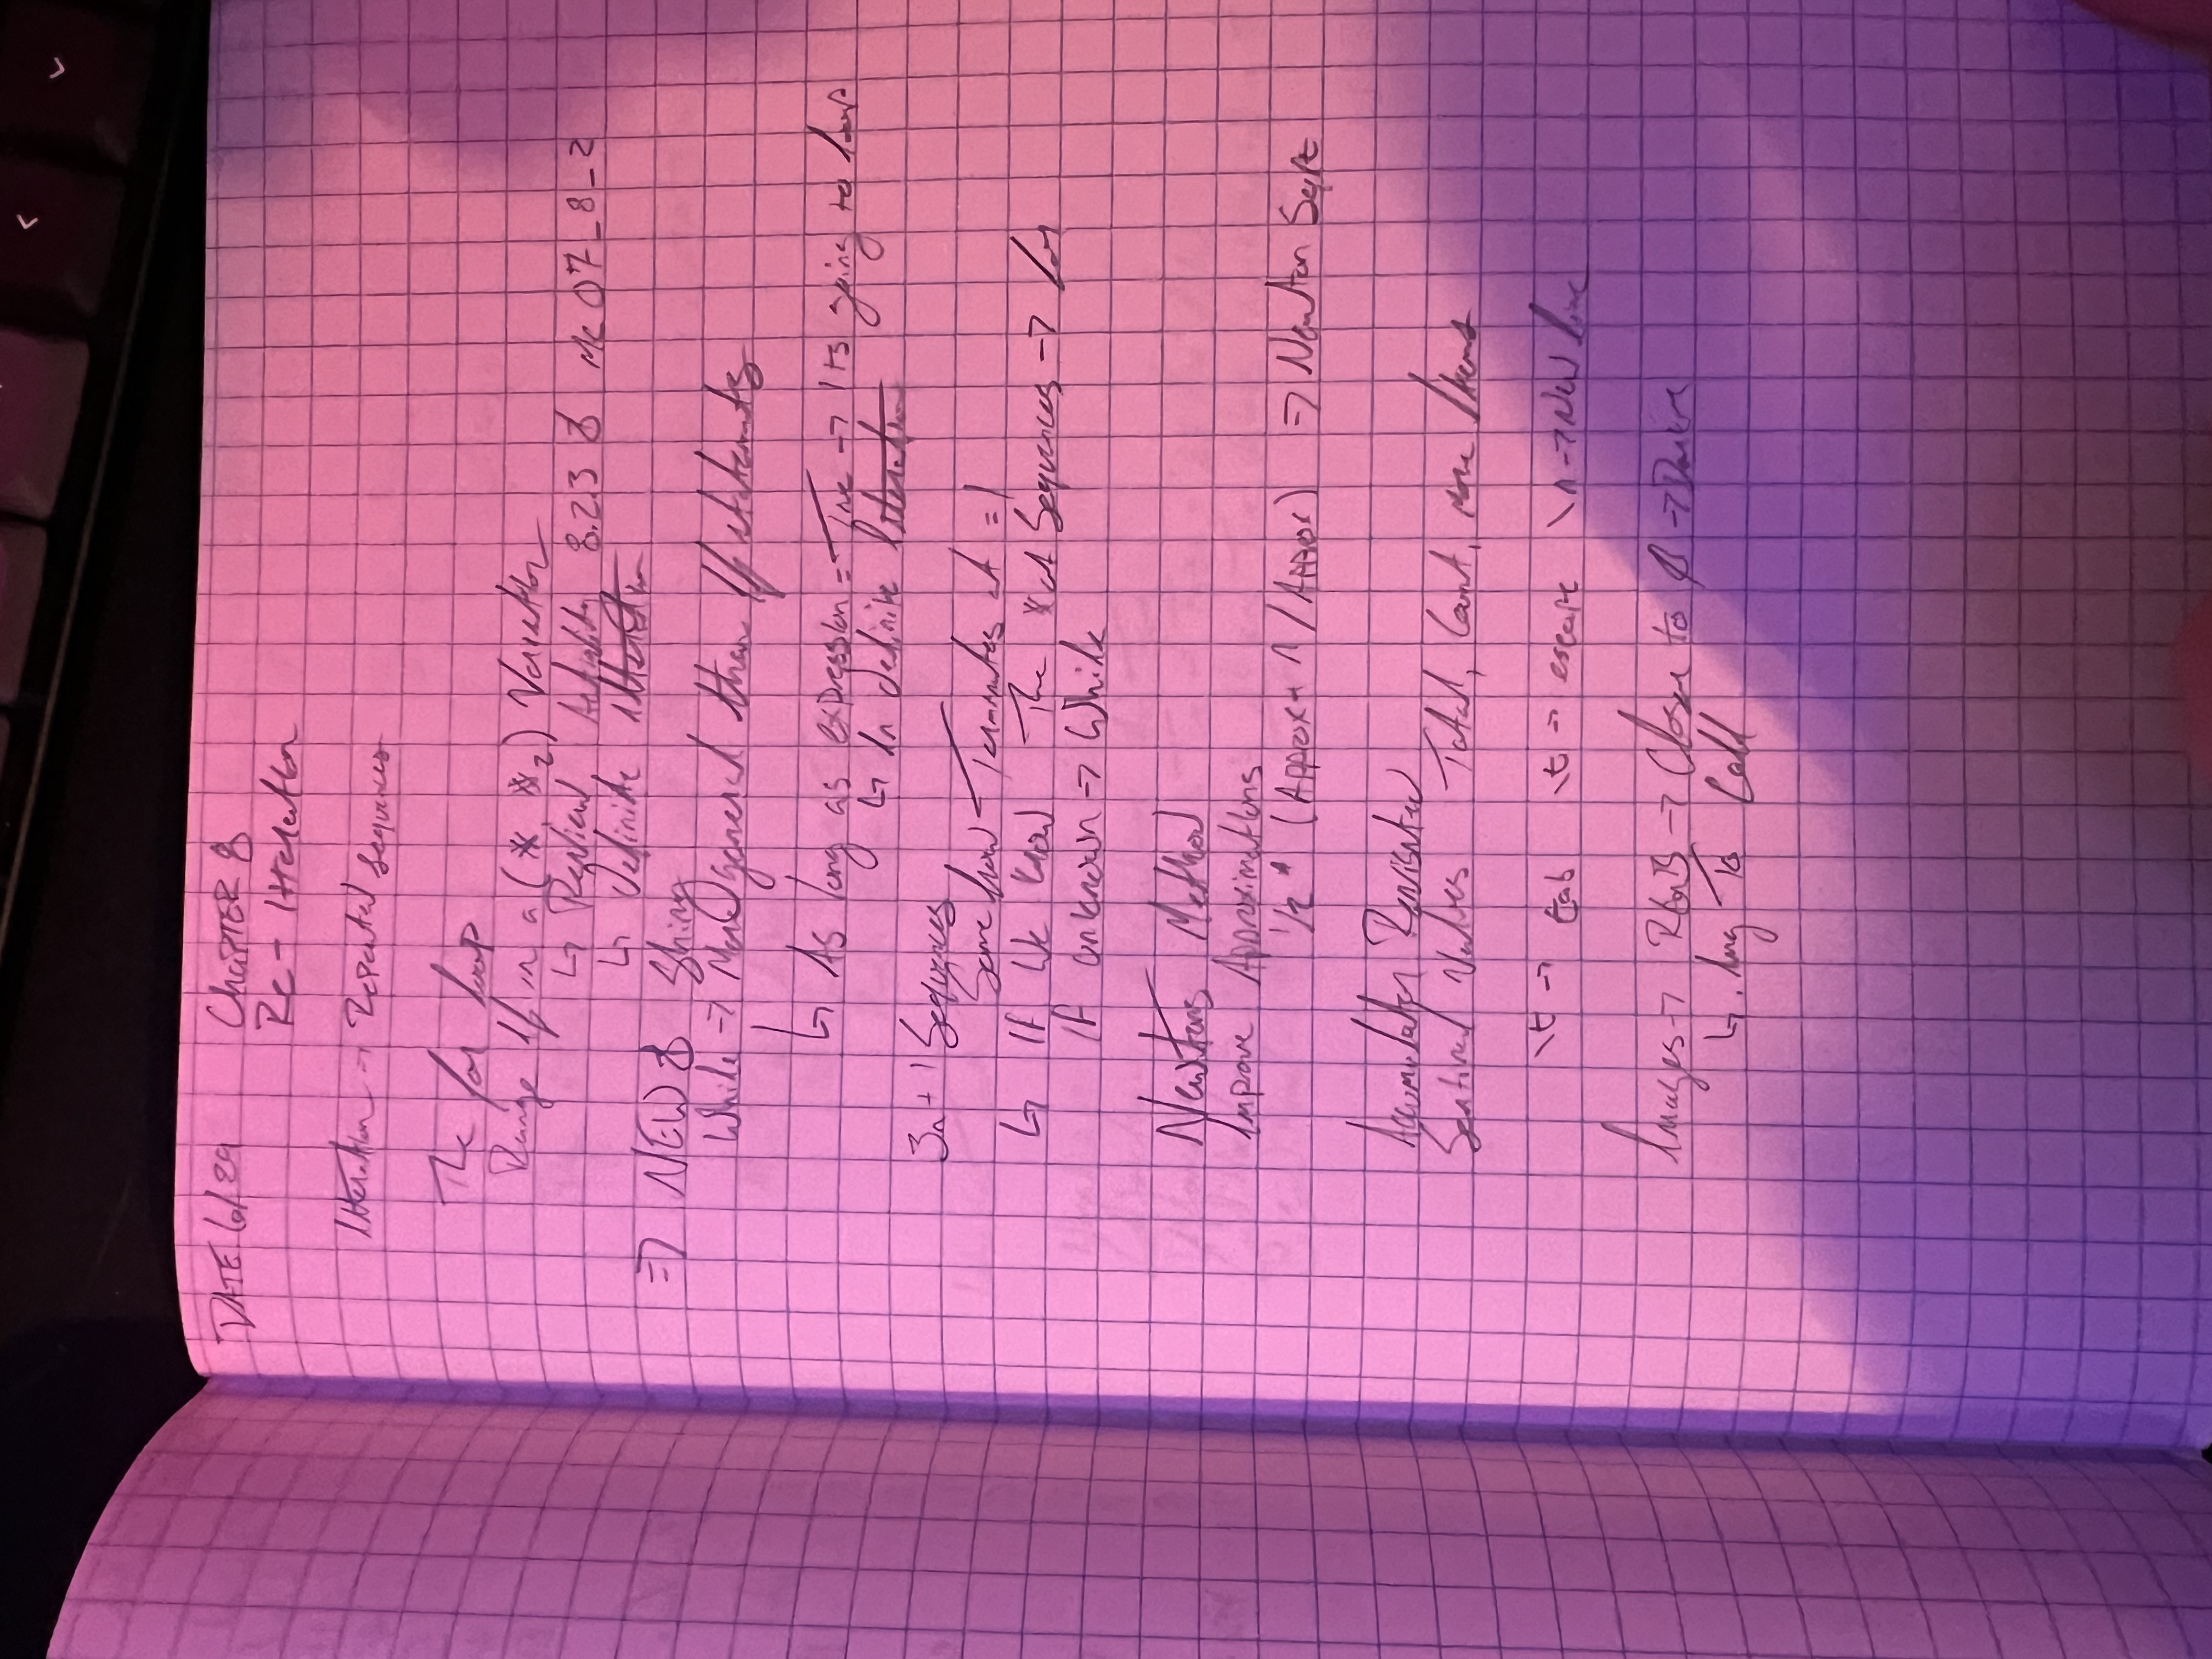 DATE 6/29 Chapter 8
Re-Iteration
Iteration → Repeated Sequences
The for loop
Range if in a (*, *2) Variation
↳ Review Activity 8.2.3 & MC 07_8_2
↳ Definite Iteration
⇒ NEW & Shiny
While → More general than if statements
↳ As long as expression = True → Its going to loop
↳ In definite Iteration
3n + 1 Sequences
Some how Terminates at = 1
↳ If We Know The # of Sequences → for
If unknown → While
Newtons Method
Improve Approximations
1/2 * (Approx + n / Approx) ⇒ Newton Sqrt
Accumulator Revisited
Sentinel Values Total, Count, More Items
\t → tab \t → escape \n → New line
Images → RGB → Closer to 0 → Darker
↳ .img To Call